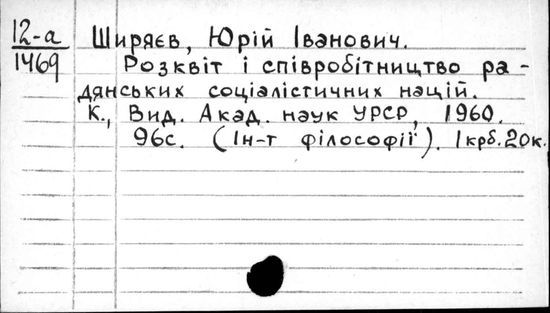 12-а
1469
Ширяєв, Юрій Іванович.
Розквіт і співробітництво ра-
дянських соціалістичних націй.
К., Вид. Акад. наук УРСР, 1960.
96с. (Ін-т філософії). 1крб.20к.